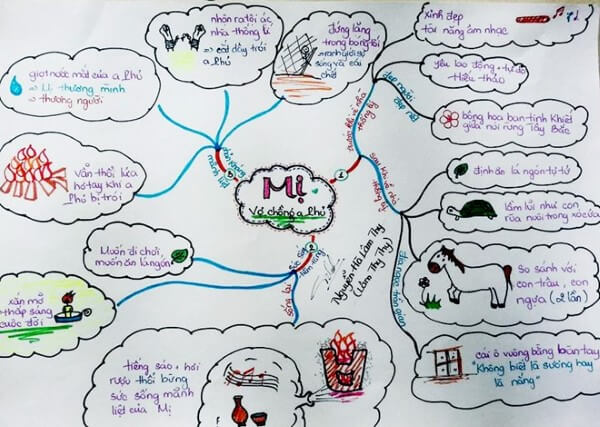 Mị
Vợ chồng a Phủ
1
xinh đẹp
tài năng âm nhạc
yêu lao động + tự do
hiếu thảo
bông hoa ban tinh khiết
giữa núi rừng Tây Bắc
đẹp người
đẹp nết
trước khi về nhà
thống lý
sau khi về nhà
thống lý
định ăn lá ngón tự tử
lầm lũi như con
rùa nuôi trong xó cửa
So sánh với
con trâu, con
ngựa (2 lần)
cái ô vuông bằng bàn tay
"Không biết là sương hay
là nắng"
2
sức sống
tiềm tàng
sống lại
Muốn đi chơi,
muốn ăn lá ngón
xắn mỡ
thắp sáng
cuộc đời
tiếng sáo + hơi
rượu thổi bừng
sức sống mãnh
liệt của Mị
3
phản kháng
mãnh liệt
Vẫn thổi lửa
hơ tay khi a
Phủ bị trói
giọt nước mắt của a Phủ
=> Mị thương mình
=> thương người
nhận ra tội ác
nhà thống lí
=> cắt dây trói
a Phủ
đứng lặng
trong bóng tối
=> ranh giới sự
sống và cái
chết
Nguyễn Hà Lâm Thy
(Lâm Thy Thy)